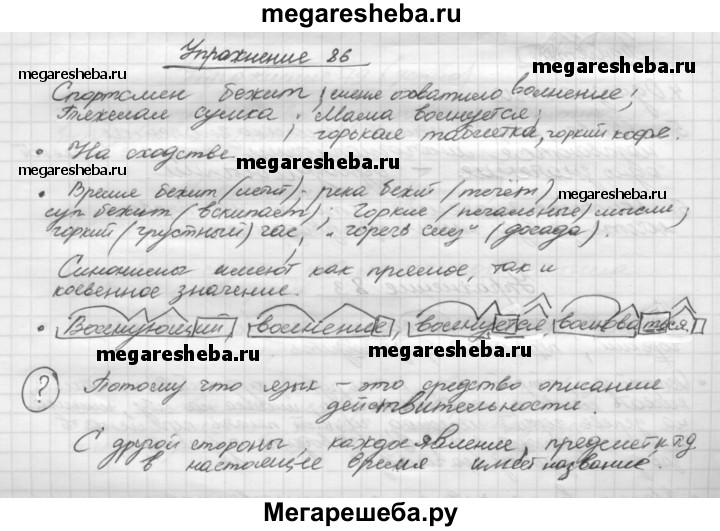 megaresheba.ru
Упражнение 86
megaresheba.ru
megaresheba.ru
Спортсмен бежит, меня охватило волнение;
Тяжелая сумка. Мама волнуется;
горькая таблетка, горкий кофе.
• На сходстве
megaresheba.ru
• Время бежит (летит) - река бежит (течёт)
megaresheba.ru
суп бежит (вскипает); Горкие (печальные) мысли;
горкий (грустный) час, "горечь слёз" (досада).
megaresheba.ru
Синонимы имеют как прямое, так и
косвенное значение.
• Волнующий, волнение, волнуется
megaresheba.ru
megaresheba.ru
? Потому что язык – это средство описания
действительности.
С другой стороны, каждое явление, предмет и т.д
в настоящее время имеет название.
Мегарешеба.ру